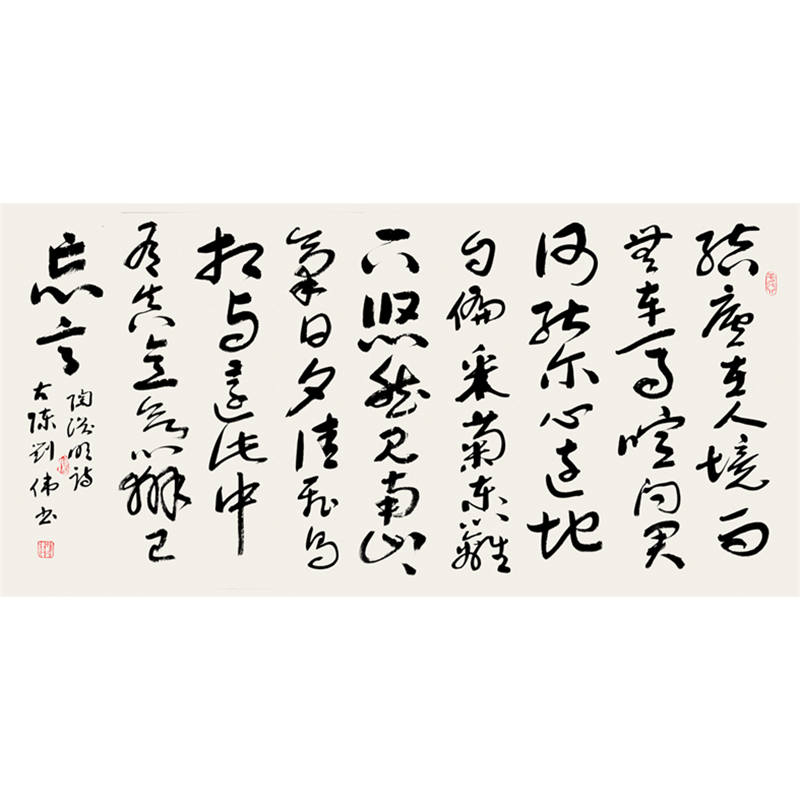 結廬在人境而
無車馬喧問君
何能尔心遠地
自偏采菊東籬
下悠然見南山〻
氣日夕佳飛鳥
相与還此中
有真意欲辨已
忘言
陶淵明詩
古陳劉偉书